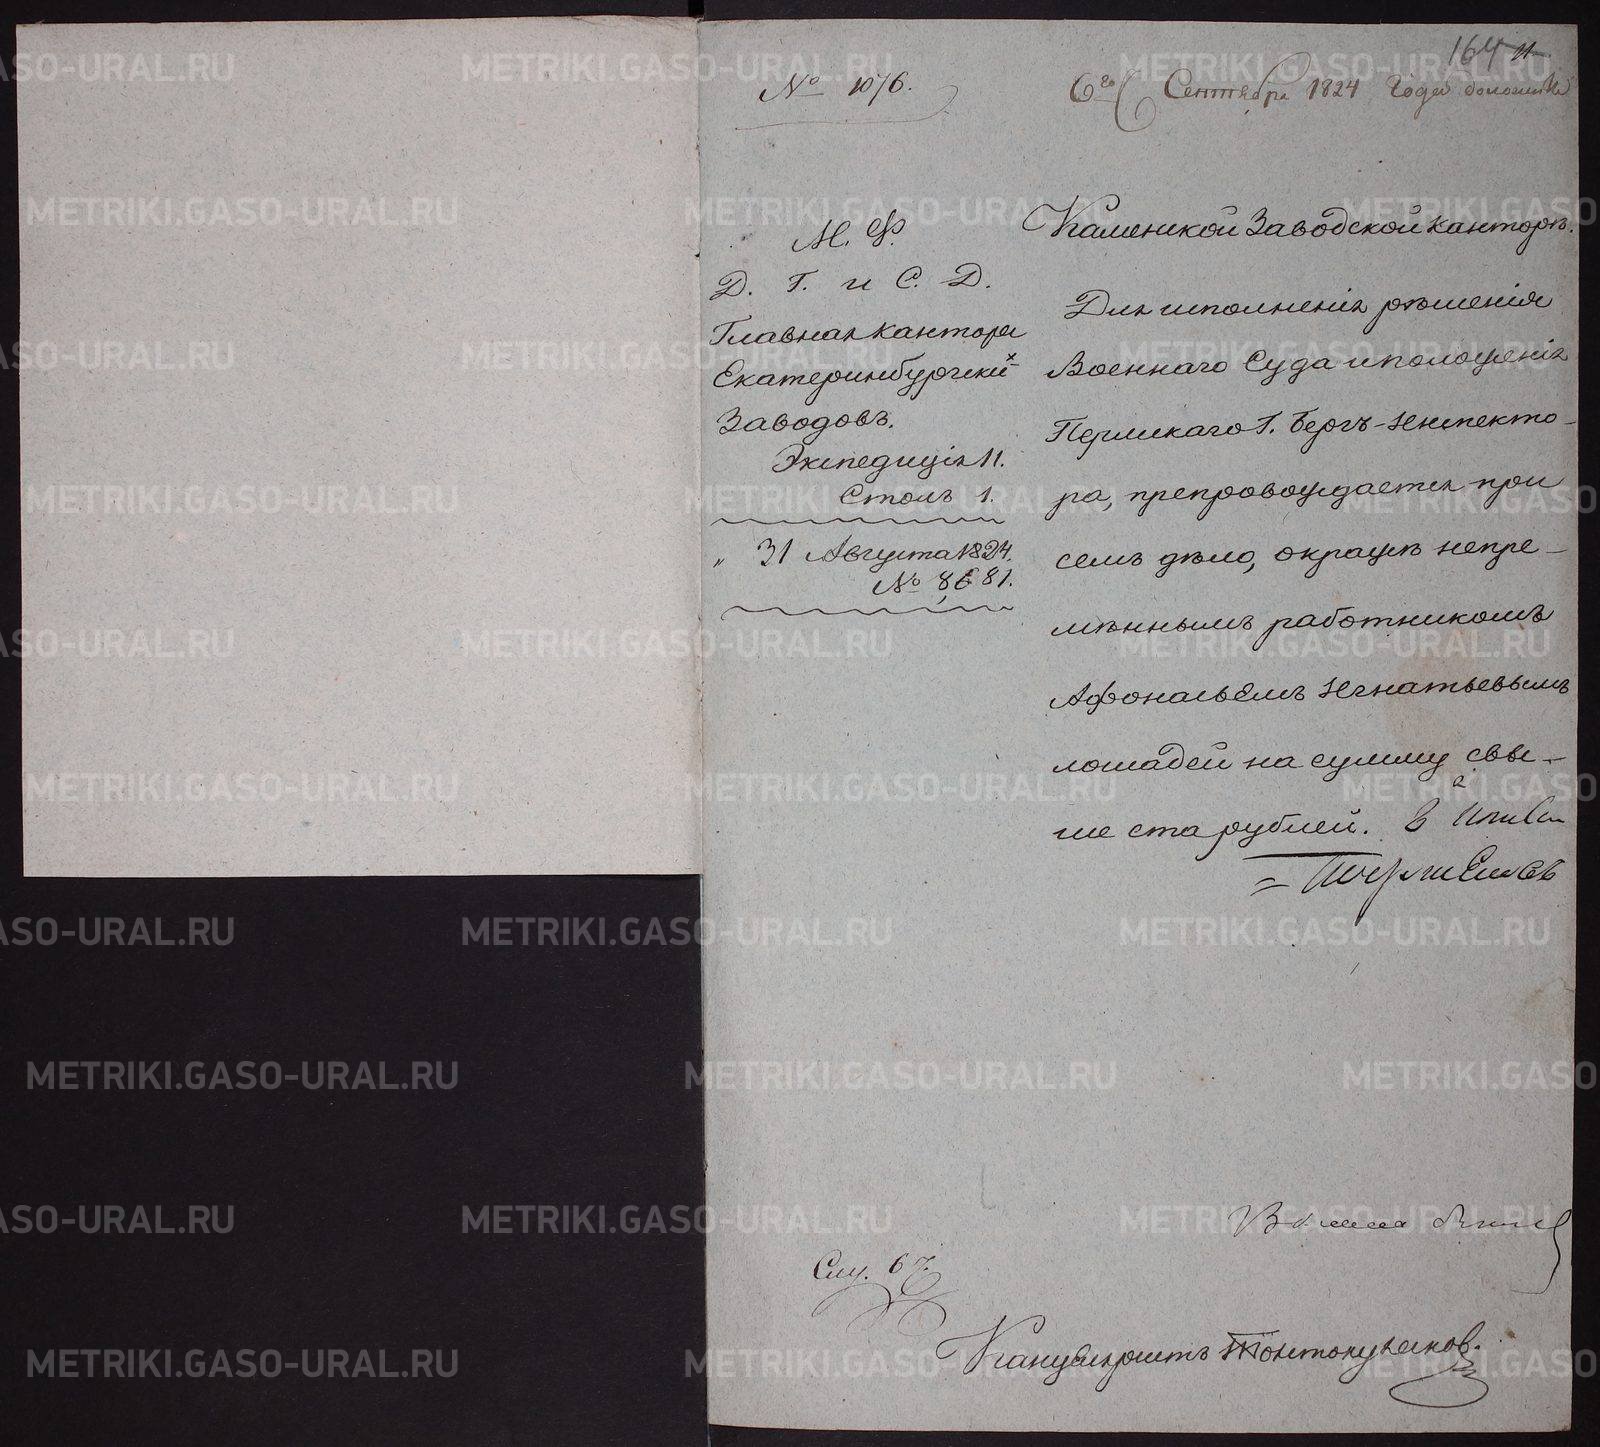 164 11
№ 1076.
6го Сентября 1824 Года
М. Ф.
Д. Г. и С. Д.
Главная кантора
Екатеринбургскихъ
Заводовъ.
Экспедиція 11.
Столъ 1.
„ 31 Августа 1824.
№ 8681.
Каменской Заводской канторѣ.
Для исполненія рѣшенія
Военнаго Суда и положенія
Пермскаго Г. Бергъ-Инспекто-
ра, препровождается при
семъ дѣло, о кражѣ непре-
мѣннымъ работникомъ
Афонасьемъ Игнатьевымъ
лошадей на сумму свы-
ше ста рублей.
Слу. 67.
Канцеляристъ
METRIKI.GASO-URAL.RU